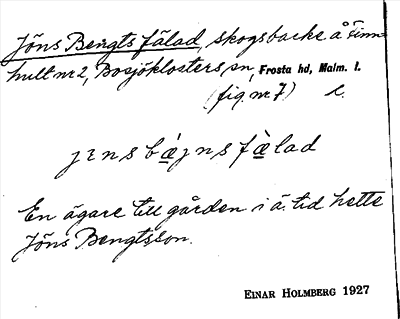 Jöns Bengts fälad, skogsbacke å Finn-
hult nr 2, Bosjöklosters sn, Frosta hd, Malm. l.
(fig. nr 7) l.
jɛns bæ̀jns fæ̀lad
En ägare till gården i ä. tid hette
Jöns Bengtsson.
EINAR HOLMBERG 1927